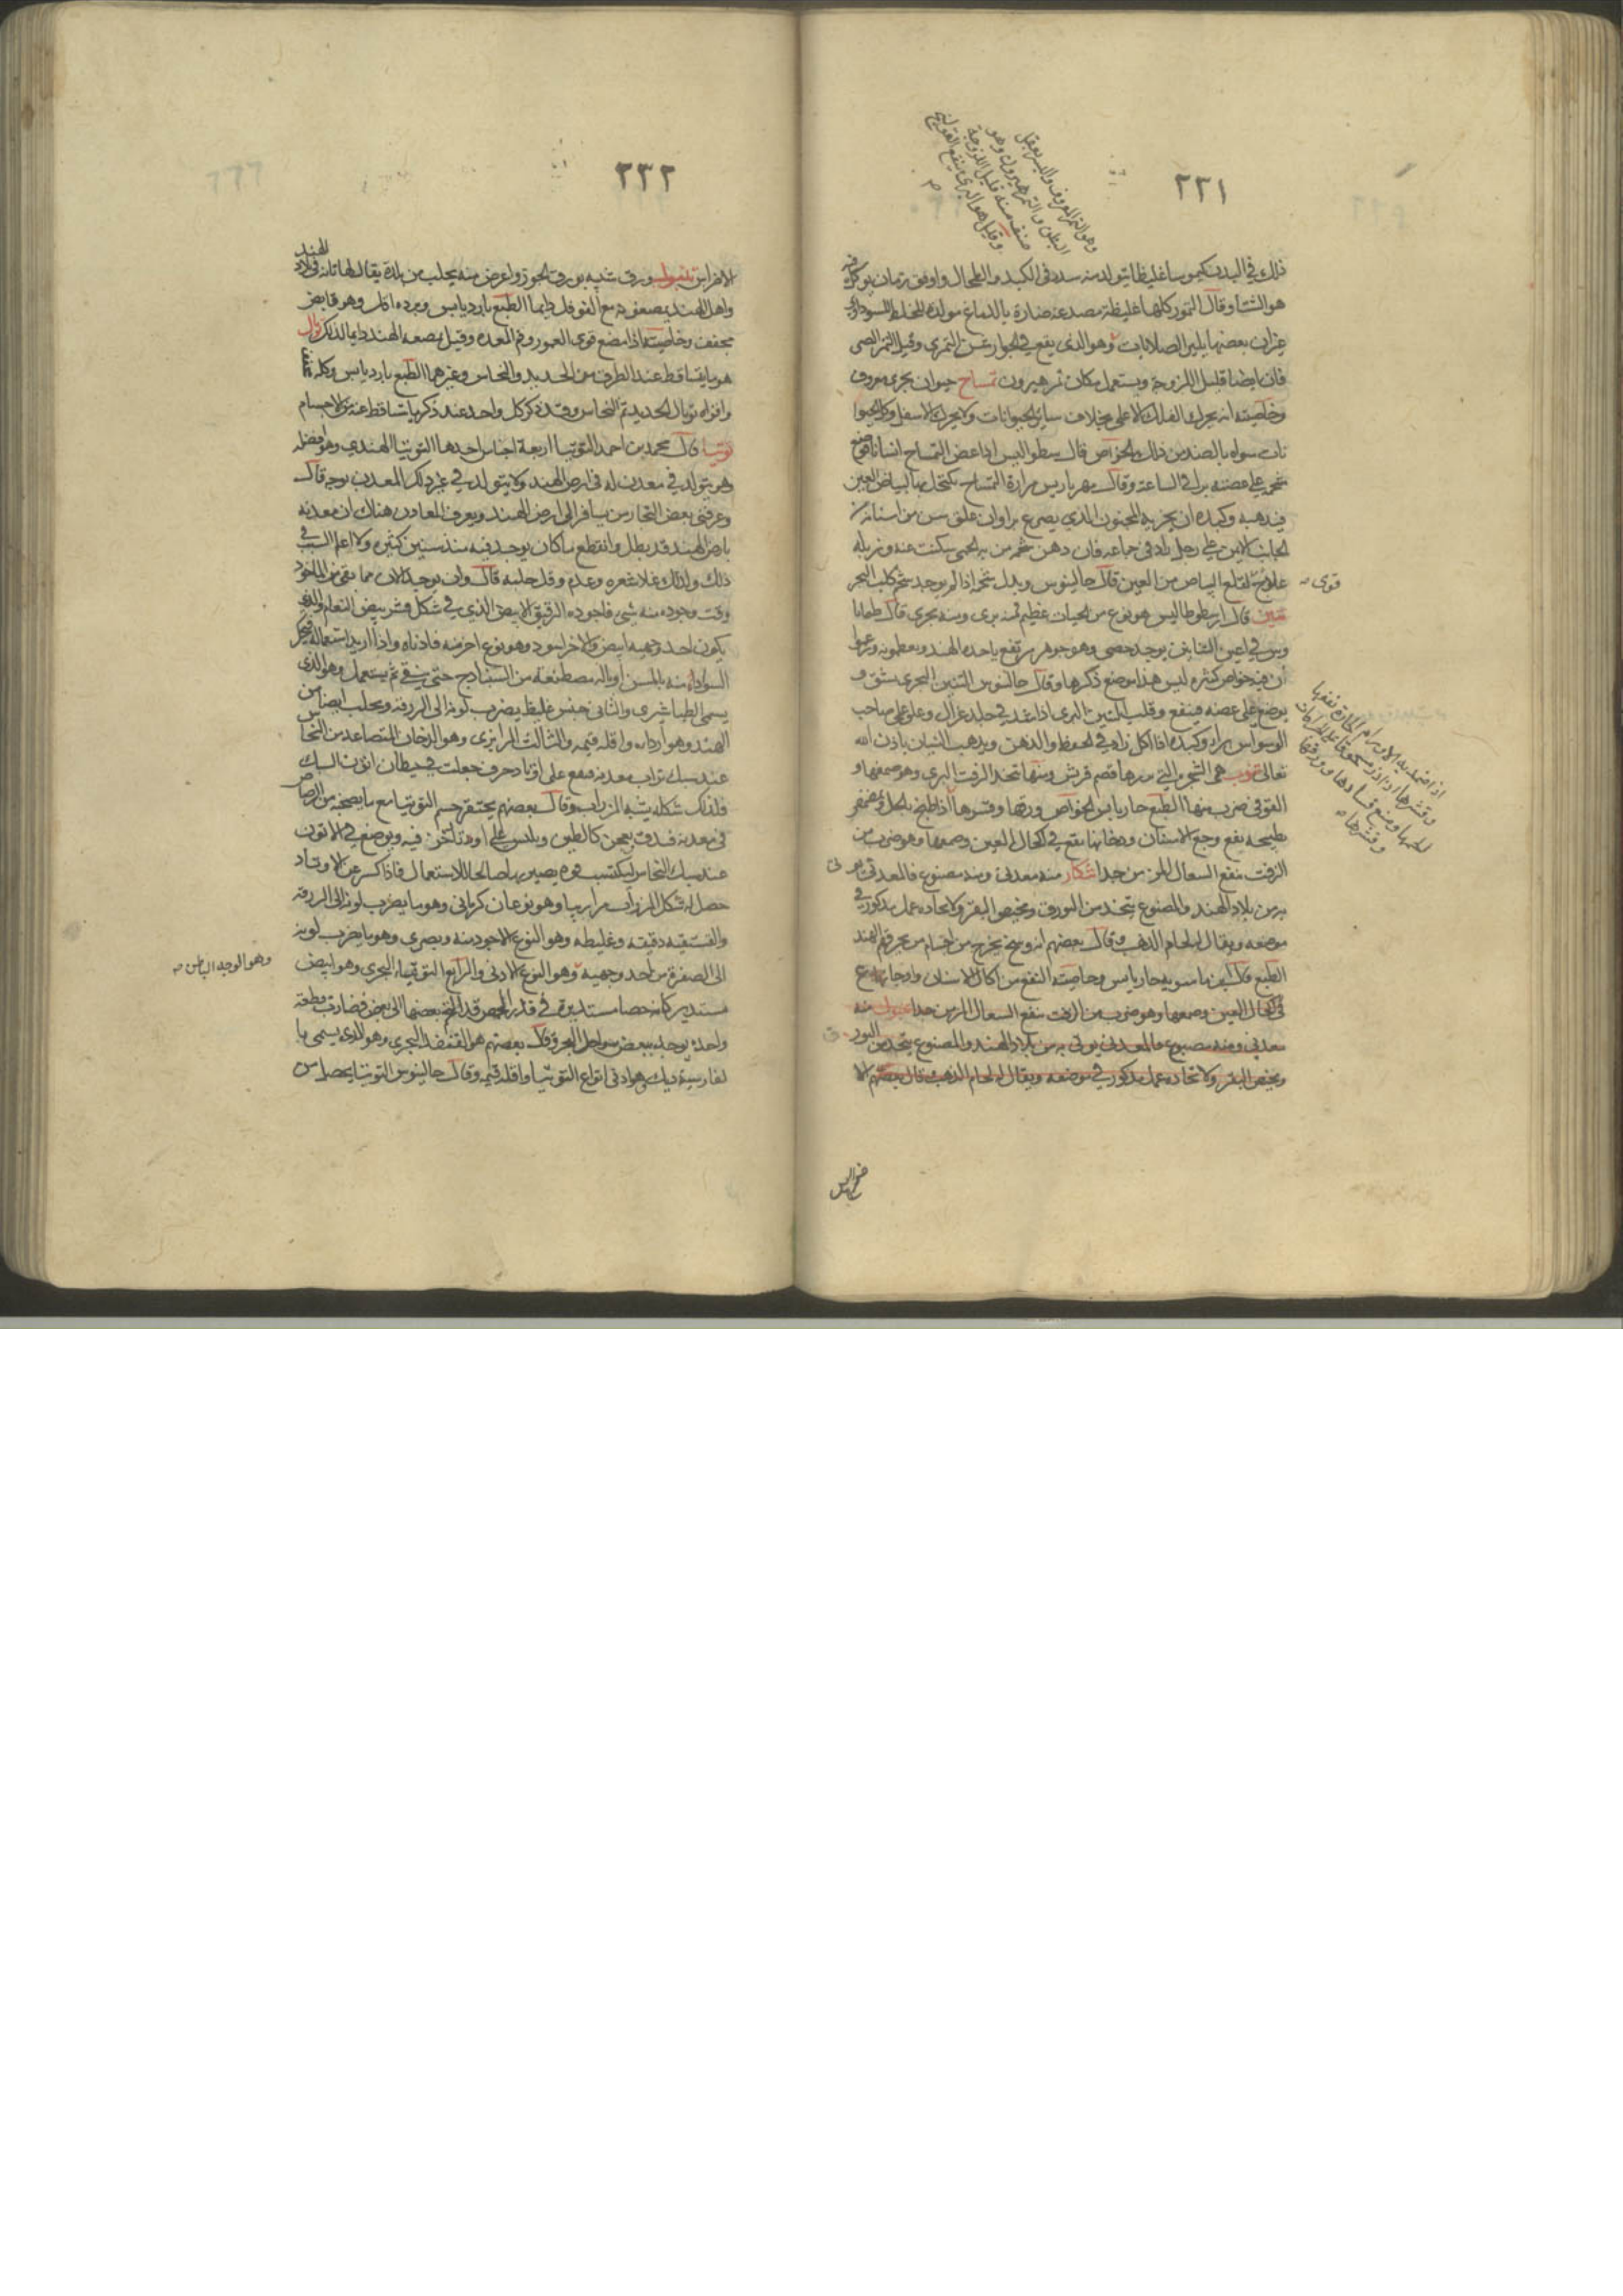 ٢٣١
وهو التمر المعروف والبسر يعقل
البطن والتمر هيرون وهو
صنف منه قليل اللزوجة
وقيل هو البري ينفع القولنج
ذلك في البدن كيموسا غليظا يتولد منه سدد في الكبد والطحال واوفق زمان يوكل فيه
هو الشتا وقال التمور كلها غليظة مصدعة ضارة بالدماغ مولدة للخلط السوداوي
غير ان بعضها يلين الصلابات وهو الذي يقع في الجوارشن التمري وقيل التمر الصى
فان ايضا قليل اللزوجة ويستعمل مكان تمر هيرون تمساح حيوان بحري معروف
وخاصيته انه يحرك الفك الاعلى بخلاف سائر الحيوانات ولا يحرك الاسفل وكل الحيوا
نات سواه بالضد من ذلك الخواص قال بيطواليس اذا عض التمساح انسانا فوضع
شحمه على عضته برا في الساعة وقال مهراريس مرارة التمساح يكتحل بها لبياض العين
فيذهبه وكبده ان بخر به المجنون الذي يصرع برا وان علق سن من اسنانه من
الجانب الايمن على رجل زاد في جماعه فان دهن شحمه من به الحمى سكنت عنه وزبله
علاج لقلع البياض من العين قال جالينوس وبدل شحمه اذا لم يوجد شحم كلب البحر
قوى
تنين قال ارسطوطاليس هو نوع من الحيات عظيم فمنه بري ومنه بحري قال
وبين في اعين التنانين يوجد حصى وهو جوهر مرتفع ياخده الهند ويعظمونه وزعموا
ان فيه خواص كثيرة ليس هذا موضع ذكرها وقال جالينوس التنين البحري يشق و
يوضع على عضته فينفع وقلب التنين البري اذا شد في جلد غزال وعلق على صاحب
الوسواس برا وكبده اذا اكل زاد في الحفظ والذهن ويذهب النسيان باذن الله
تعالى تنوب هي الشجرة التي بزرها قضم قريش ومنها تتخذ الزفت البري وهو صمغها و
الفوفي ضرب منها الطبع حار يابس الخواص ورقها وقشرها اذا طبخ بالخل وتمضمض
بطبيخه ينفع وجع الاسنان ودخانها يقع في اكحال العين وصمغها وهو ضرب من
الزفت ينفع السعال المزمن جدا تنكار منه معدني ومنه مصنوع فالمعدني يوتى
به من بلاد الهند والمصنوع يتخذ من البورق ومخيض البقر ولاتخاده عمل مدكور في
موضعه ويقال له لحام الذهب وقال بعضهم انه وسخ يخرج من اجسام من بحر في الهند
الطبع قال ابن ماسويه حار يابس وخاصيته النفع من اكال الاسنان واوجاعها يقع
في اكحال العين وصمغها وهو ضرب من الزفت ينفع السعال المزمن جدا منه
معدني ومنه مصنوع فالمعدني يوتى به من بلاد الهند والمصنوع يتخذ من البور ق
ومخيض البقر ولاتخاده عمل مدكور في موضعه ويقال له لحام الذهب قال بعضهم الا
اذا ضمد به الاورام الحارة نفعها
وقشرها اذا ذر مسحوقا على السرطان
اكلها ومنع فسادها وورقها
وقشرها
٢٣٢
الاضراس تنبول ورق شبيه بورق الجوز واعرض منه يجلب من بلدة يقال لها تانه في بلاد الهند
واهل الهند يمضغونه مع الفوفل دايما الطبع بارد يابس وبرده اقل وهو قابض
مجفف وخاصيته اذا مضغ قوى العمور وفم المعدة وقيل يمضغه الهند دايما لذلك توبال
هو ما يتساقط عند الطرق من الحديد والنحاس وغيرهما الطبع بارد يابس وكله
واقواه توبال الحديد ثم النحاس وقد ذكر كل واحد عند ذكر ما يتساقط عنه من الاجسام
توتيا قال محمد بن احمد التوتيا اربعة اجناس احدها التوتيا الهندي وهو افضله
وهو يتولد في معدن له في ارض الهند ولا يتولد في غير ذلك المعدن بوجه قال
وعرفني بعض التجار من يسافر الى ارض الهند ويعرف المعادن هناك ان معدنه
بارض الهند قد بطل وانقطع ما كان يوجد فيه منذ سنين كثيره ولا اعلم السبب في
ذلك ولذلك غلا سعره وعدم وقل جلبه قال وان يوجد الان مما بقي من الماخوذ
وقت وجوده منه شيء فاجوده الرقيق الابيض الذي في شكل قشر بيض النعام والذي
يكون احد وجهيه ابيض والاخر اسود وهو نوع اخر منه فادناه واذا اريد استعماله فيحك
السواد منه بالمسن او بالة مصطنعة من السنبادج حتى ينقى ثم يستعمل وهو الذي
يسمى الطباشيري والثاني جنس غليظ يضرب لونه الى الزرقة ويجلب ايضا من
الهند وهو اردا واقله قيمه والثالث المرازبي وهو الدخان المتصاعد من النحاس
عند سبك تراب معدنه فيقع على اوتاد خزف جعلت في حيطان اتون السبك
فلذلك شكله يشبه المزراب وقال بعضهم يحتفر جسم التوتيا مع ما يصحبه من الرصاص
في معدنه فيدق ويعجن كالطين ويلبس على اوتد الخزف فيه ويوضع في الاتون
عند سبك النحاس ليكتسب قوة يصير بها صالحا للاستعمال فاذا كسر عن الاوتاد
حصل له شكل المزراب مرازبيا وهو نوعان كرماني وهو ما يضرب لونه الى الزرقة
والفستقية دقيقه وغليظه وهو النوع الاجود منه وبصري وهو ما يضرب لونه
الى الصفرة من احد وجهيه وهو النوع الادنى والرابع التوتيا البحري وهو ابيض
وهو الوجه الباطن
مستدير كانه حصا مستديرة في قدر الحمص قد التحم بعضها الى بعض فصارت قطعة
واحدة يوجد ببعض سواحل البحر وقال بعضهم هو القنفذ البحري وهو الذي يسمى با
لفارسية ديك وهو ادنى انواع التوتيا واقله قيمه وقال جالينوس التوتيا يحصل من